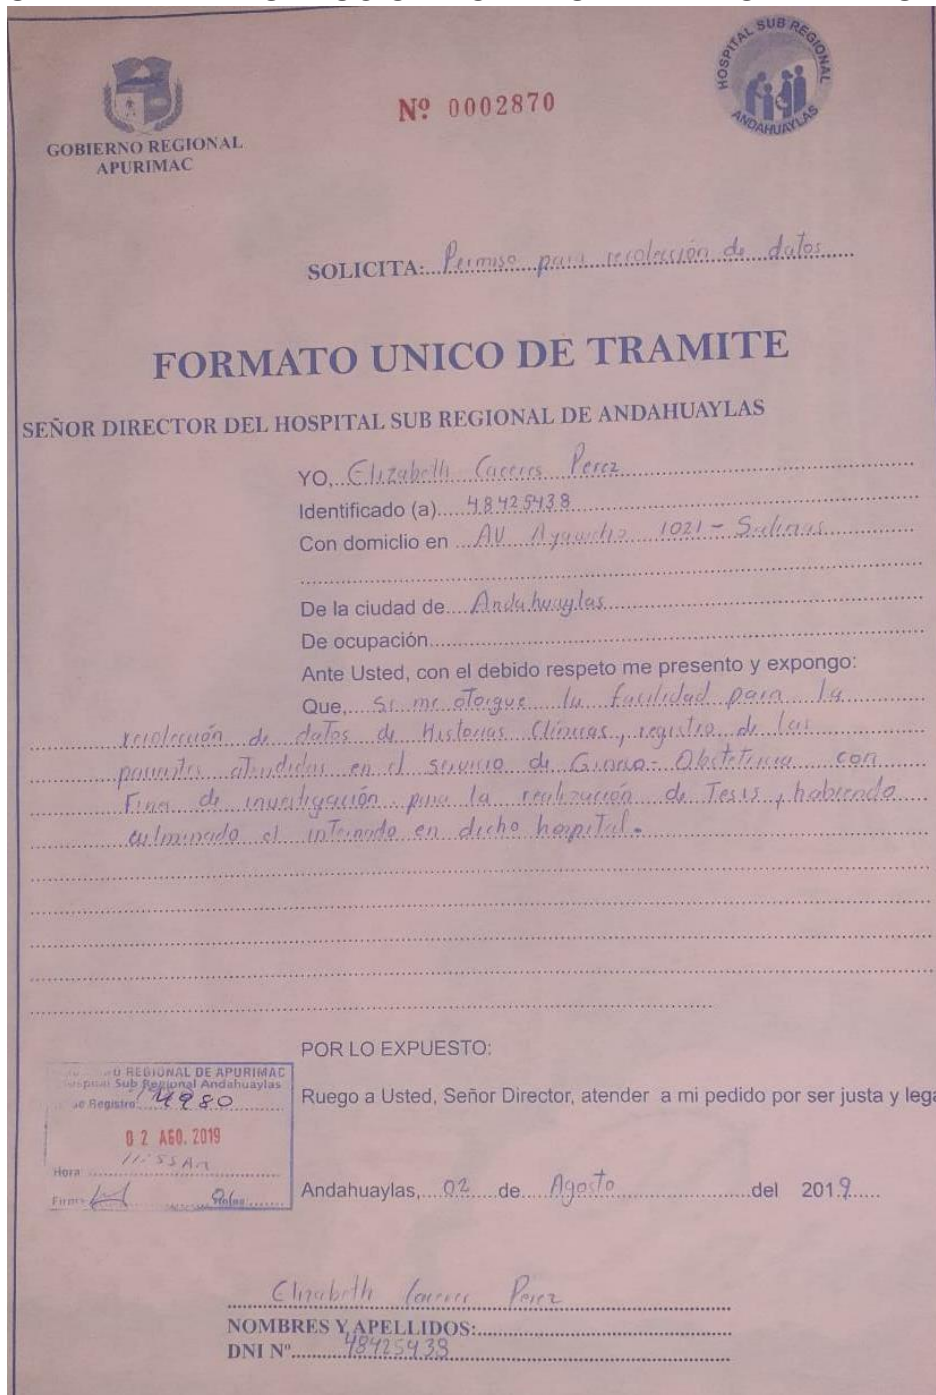 GOBIERNO REGIONAL
APURIMAC
Nº 0002870
HOSPITAL SUB REGIONAL
ANDAHUAYLAS
SOLICITA: Permiso para recolección de datos
FORMATO UNICO DE TRAMITE
SEÑOR DIRECTOR DEL HOSPITAL SUB REGIONAL DE ANDAHUAYLAS
YO, Elizabeth Caceres Perez
Identificado (a) 48425438
Con domicilio en AV Ayacucho 1021 - Salinas
De la ciudad de Andahuaylas
De ocupación
Ante Usted, con el debido respeto me presento y expongo:
Que, se me otorgue la facilidad para la
recolección de datos de Historias Clínicas, registro de las
pacientes atendidas en el servicio de Gineco-Obstetricia con
Fines de investigación para la realización de Tesis, habiendo
culminado el internado en dicho hospital.
POR LO EXPUESTO:
REGIONAL DE APURIMAC
Hospital Sub Regional Andahuaylas
Ruego a Usted, Señor Director, atender a mi pedido por ser justa y lega
de Registro: 4980
02 AGO. 2019
Hora: 11:55 Am
Firma Folios:
Andahuaylas, 02 de Agosto del 2019
Elizabeth Caceres Perez
NOMBRES Y APELLIDOS:
DNI Nº 48425438